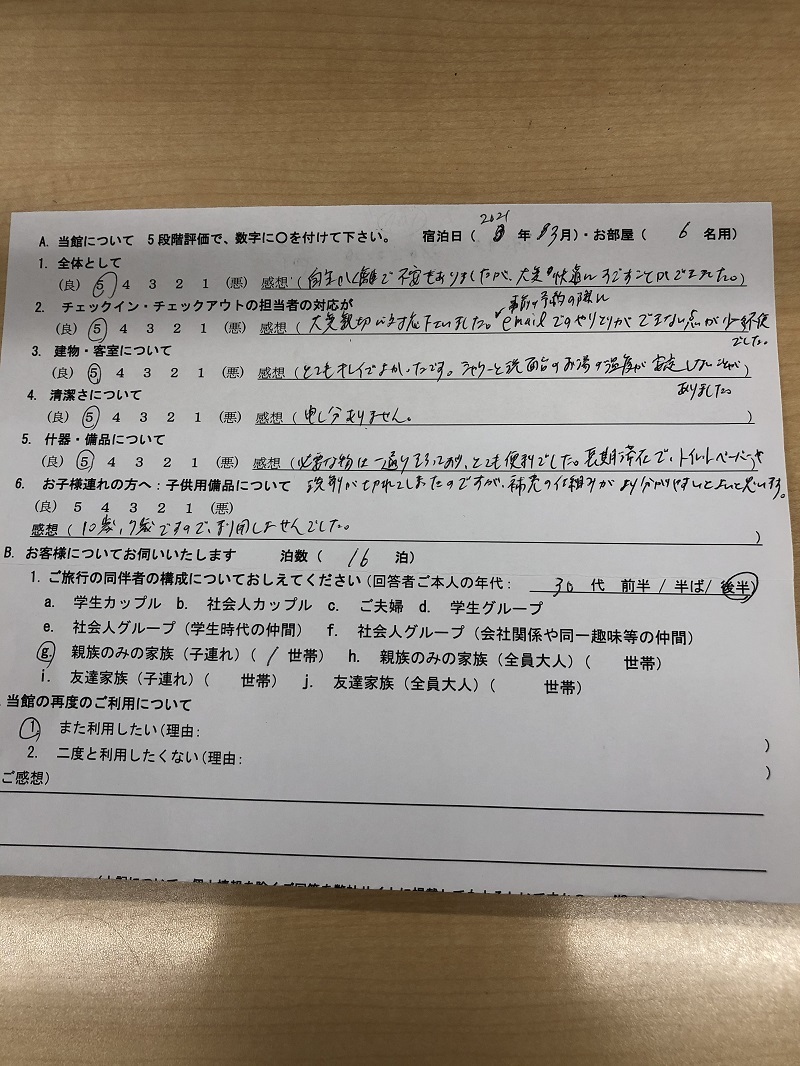 2021
A. 当館について 5段階評価で、数字に〇を付けて下さい。 宿泊日( 年 3月)・お部屋( 6 名用)
1. 全体として
(良) 5 4 3 2 1 (悪) 感想(自主かく離で不安もありましたが、大変快適にすごすことができました。)
2. チェックイン・チェックアウトの担当者の対応が 事前の予約の際に
(良) 5 4 3 2 1 (悪) 感想(大変親切に対応下さいました。emailでのやりとりができない点が少々不便
でした。
3. 建物・客室について
(良) 5 4 3 2 1 (悪) 感想(とてもキレイでよかったです。シャワーと洗面台のお湯の温度が安定しないことが)
ありました。
4. 清潔さについて
(良) 5 4 3 2 1 (悪) 感想(申し分ありません。 )
5. 什器・備品について
(良) 5 4 3 2 1 (悪) 感想(必要な物は一通りそろっており、とても便利でした。長期滞在で、トイレットペーパーや
6. お子様連れの方へ:子供用備品について 洗剤が切れてしまったのですが、補充の仕組みがより分かりやすいとよいと思います。
(良) 5 4 3 2 1 (悪)
感想(10歳、7歳ですので、利用しませんでした。 )
B. お客様についてお伺いいたします 泊数( 16 泊)
1. ご旅行の同伴者の構成についておしえてください(回答者ご本人の年代: 30 代 前半 / 半ば/ 後半)
a. 学生カップル b. 社会人カップル c. ご夫婦 d. 学生グループ
e. 社会人グループ(学生時代の仲間) f. 社会人グループ(会社関係や同一趣味等の仲間)
g. 親族のみの家族(子連れ)( 1 世帯) h. 親族のみの家族(全員大人)( 世帯)
i. 友達家族(子連れ)( 世帯) j. 友達家族(全員大人)( 世帯)
. 当館の再度のご利用について
1. また利用したい(理由: )
2. 二度と利用したくない(理由: )
ご感想)